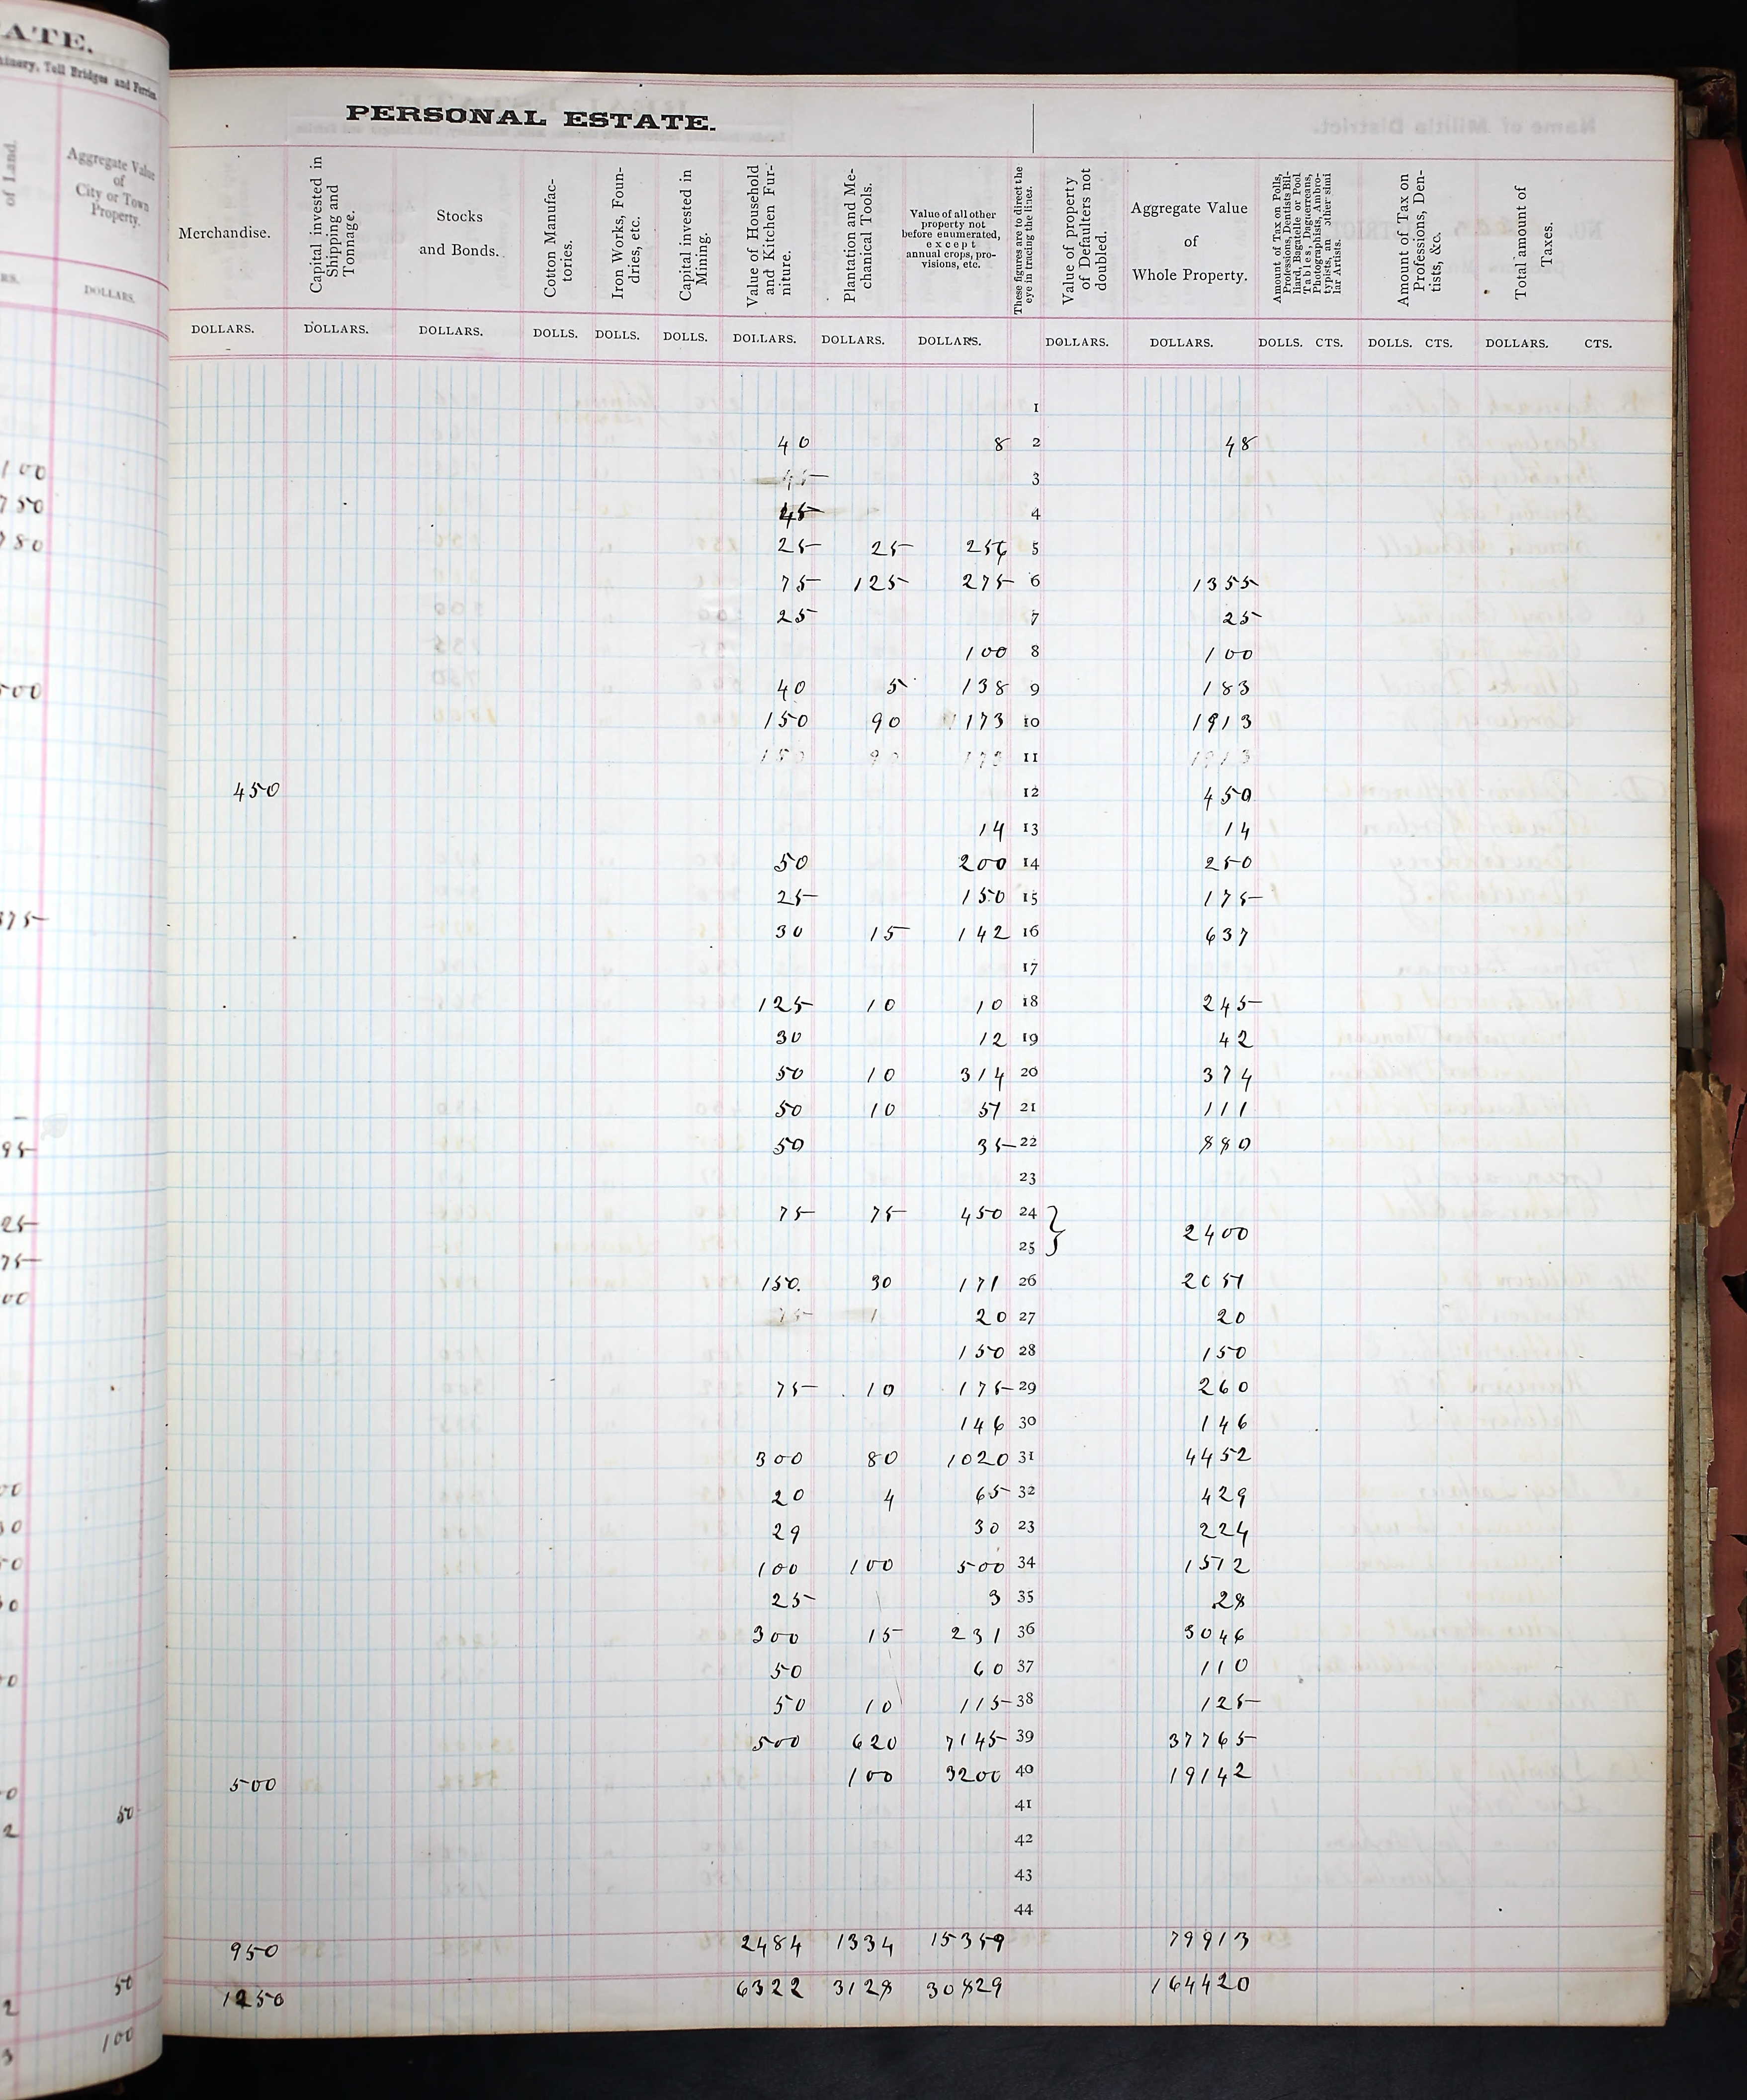 ATE.
hinery, Toll Bridges and Ferries.
of Land.
Aggregate Value
of
City or Town
Property.
DOLLARS.
100
750
780
500
375
95
25
75
00
50
50
100
PERSONAL ESTATE.
Merchandise.
Capital invested in Shipping and Tonnage.
Stocks and Bonds.
Cotton Manufactories.
Iron Works, Foundries, etc.
Capital invested in Mining.
Value of Household and Kitchen Furniture.
Plantation and Mechanical Tools.
Value of all other property not before enumerated, except annual crops, provisions, etc.
These figures are to direct the eye in tracing the lines.
Value of property of Defaulters not doubled.
Aggregate Value of Whole Property.
Amount of Tax on Polls, Professions, Dentists Billiard, Bagatelle or Pool Tables, Daguerreans, Photographists, Ambrotypists, an other simi lar Artists.
Amount of Tax on Professions, Dentists, &c.
Total amount of Taxes.
DOLLARS. DOLLARS. DOLLARS. DOLLS. DOLLS. DOLLS. DOLLARS. DOLLARS. DOLLARS. DOLLARS. DOLLARS. DOLLS. CTS. DOLLS. CTS. DOLLARS. CTS.
1
40 8 2 48
45 3
45 4
25 25 256 5
75 125 275 6 1355
25 7 25
100 8 100
40 5 138 9 183
150 90 173 10 1913
150 90 173 11 1913
450 12 450
14 13 14
50 200 14 250
25 150 15 175
30 15 142 16 637
17
125 10 10 18 245
30 12 19 42
50 10 314 20 374
50 10 51 21 111
50 35 22 880
23
75 75 450 24
25 2400
150. 30 171 26 2051
75 1 20 27 20
150 28 150
75 10 175 29 260
146 30 146
300 80 1020 31 4452
20 4 65 32 429
29 30 23 224
100 100 500 34 1512
25 3 35 28
300 15 231 36 3046
50 60 37 110
50 10 115 38 125
500 620 7145 39 37765
500 100 3200 40 19142
41
42
43
44
950 2484 1334 15359 79913
1250 6322 3128 30829 164420